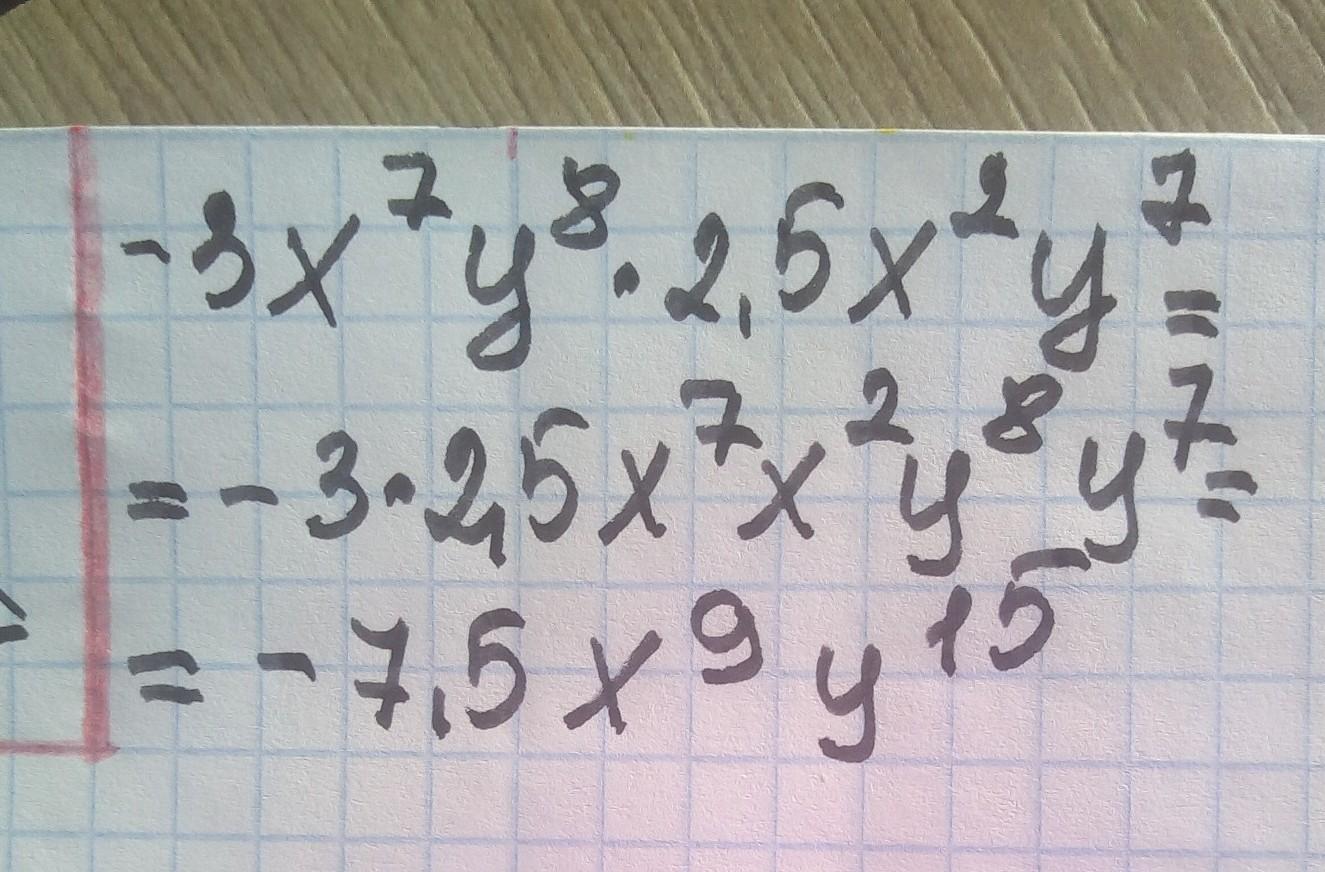 -3x⁷y⁸·2,5x²y⁷=
=-3·2,5x⁷x²y⁸y⁷=
=-7,5x⁹y¹⁵